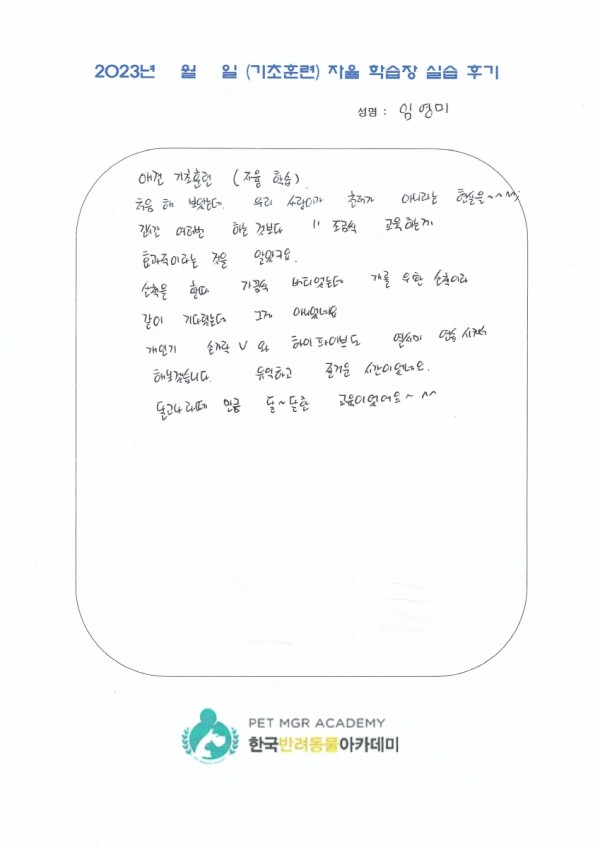 2023년 월 일 (기초훈련) 자율 학습장 실습 후기
성명 : 임영미
애견 기초훈련 (자율 학습)
처음 해 보았는데. 우리 사랑이가 천재가 아니라는 현실을~^^;
한번 여러번 하는 것보다 조금씩 교육하는게
효과적이라는 것을 알았구요.
산책을 할때 가끔씩 버티었는데 개를 위한 산책이라
같이 기다렸는데 그게 아니었네요
개인기 손가락 V 와 하이파이브도 열심히 연습 시켜서
해보겠습니다. 유익하고 즐거운 시간이였네요.
달고나 라떼 만큼 달~달한 교육이었어요~ ^^
PET MGR ACADEMY
한국반려동물아카데미